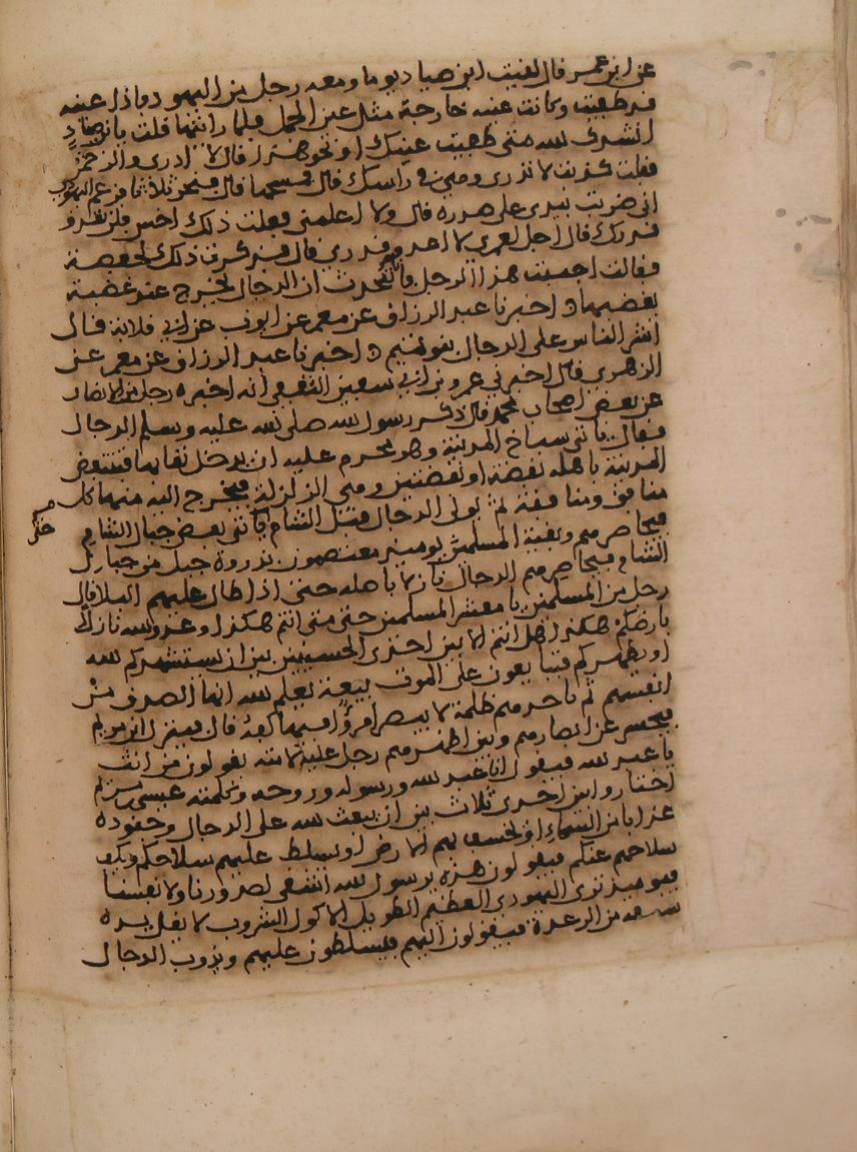 عن ابن عمر قال لقيت ابن صياد يوما ومعه رجل من اليهود واذا عينه
قد طفيت وكانت عينه خارجة مثل عين الجمل فلما رايتها قلت يا ابن صياد
انشدك الله متى طفيت عينك او نحو هذا قال لا ادري والرحمن
فقلت كذبت لا تدري وهي في راسك قال فمسحها قال فنخر ثلاثا فزعم اليهودي
اني ضربت بيدي على صدره قال ولا اعلمني فعلت ذلك اخس فلن تعدو
قدرك قال اجل لعمري لا اعدو قدري قال فذكرت ذلك لحفصة
فقالت اجتنب هذا الرجل فانا نتحدث ان الدجال يخرج عند غضبة
يغضبها ه اخبرنا عبد الرزاق عن معمر عن ايوب عن ابي قلابة قال
اشد الناس على الدجال بنو تميم ه اخبرنا عبد الرزاق عن معمر عن
الزهري قال اخبرني عمرو بن ابي سفين الثقفي انه اخبره رجل من الانصار
عن بعض اصحاب محمد قال ذكر رسول الله صلى الله عليه وسلم الدجال
فقال ياتي سباخ المدينة وهو محرم عليه ان يدخل نقابها فتنتفض
المدينة باهله نفضة او نفضتين وهي الزلزلة فيخرج اليه منها كل
منافق ومنافقة ثم يولى الدجال قبل الشام ياتي بعض جبال الشام
حتى
فيحاصرهم وبقية المسلمين يوميذ معتصمون بذروة جبل من جبال
الشام فيحاصرهم الدجال نازلا باهله حتى اذا طال عليهم البلا قال
رجل من المسلمين يا معشر المسلمين حتى متى انتم هكذا وعدو الله نازل
بارضكم هكذا هل انتم الا بين احدى الحسنيين بين ان يستشهدكم الله
او يظهركم فيتبايعون على الموت بيعة يعلم الله انها الصدق من
انفسهم ثم تاخذهم ظلمة لا يبصر امرؤ فيها كفه قال فينزل ابن مريم
فيحسر عن ابصارهم وبين اظهرهم رجل عليه لامته يقولون من انت
يا عبد الله فيقول انا عبد الله ورسوله وروحه وكلمته عيسى بن مريم
اختاروا بين احدى ثلاث بين ان يبعث الله على الدجال وجنوده
عذابا من السماء او يخسف بهم الارض او يسلط عليهم سلاحكم ويكف
سلاحهم عنكم فيقولون هذه يرسول الله اشفى لصدورنا ولانفسنا
فيوميذ ترى اليهودي العظيم الطويل الاكول الشروب لا تقل يده
سيفه من الرعدة فيقولون اليهم فيسلطون عليهم ويذوب الدجال